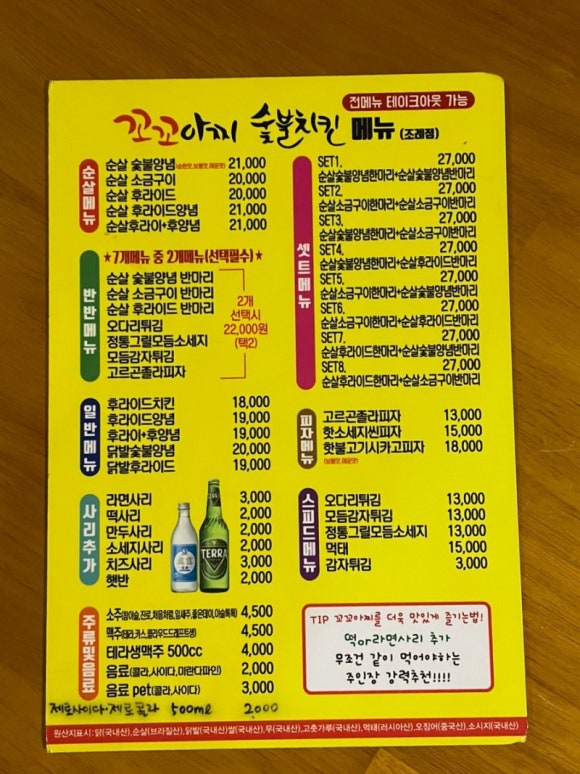 전메뉴 테이크아웃 가능
꼬꼬아찌 숯불치킨 메뉴 (조례점)
순살메뉴
순살 숯불양념(순한맛,보통맛,매운맛) 21,000
순살 소금구이 20,000
순살 후라이드 20,000
순살 후라이드양념 21,000
순살후라이+후양념 21,000
반반메뉴
★7개메뉴 중 2개메뉴(선택필수)★
순살 숯불양념 반마리
순살 소금구이 반마리
순살 후라이드 반마리
오다리튀김
정통그릴모듬소세지
모듬감자튀김
고르곤졸라피자
2개
선택시
22,000원
(택2)
일반메뉴
후라이드치킨 18,000
후라이드양념 19,000
후라이+후양념 19,000
닭발숯불양념 20,000
닭발후라이드 19,000
사리추가
라면사리 3,000
떡사리 2,000
만두사리 2,000
소세지사리 2,000
치즈사리 3,000
햇반 2,000
TERRA
주류및음료
소주(참이슬,진로,처음처럼,잎새주,좋은데이,이슬톡톡) 4,500
맥주(테라,카스,클라우드드래프트생) 4,500
테라생맥주 500cc 4,000
음료(콜라,사이다,미란다파인) 2,000
음료 pet(콜라,사이다) 3,000
제로사이다·제로콜라 500ml 2000
셋트메뉴
SET1. 27,000
순살숯불양념한마리+순살숯불양념반마리
SET2. 27,000
순살소금구이한마리+순살소금구이반마리
SET3. 27,000
순살숯불양념한마리+순살소금구이반마리
SET4. 27,000
순살숯불양념한마리+순살후라이드반마리
SET5. 27,000
순살소금구이한마리+순살숯불양념반마리
SET6. 27,000
순살소금구이한마리+순살후라이드반마리
SET7. 27,000
순살후라이드한마리+순살숯불양념반마리
SET8. 27,000
순살후라이드한마리+순살소금구이반마리
피자메뉴
고르곤졸라피자 13,000
핫소세지씬피자 15,000
핫불고기시카고피자 18,000
(보통맛,매운맛)
스피드메뉴
오다리튀김 13,000
모듬감자튀김 13,000
정통그릴모듬소세지 13,000
먹태 15,000
감자튀김 3,000
TIP 꼬꼬아찌를 더욱 맛있게 즐기는법!
떡or라면사리 추가
무조건 같이 먹어야하는
주인장 강력추천!!!!
원산지표시: 닭(국내산),순살(브라질산),닭발(국내산)쌀(국내산),무(국내산),고춧가루(국내산),먹태(러시아산),오징어(중국산),소시지(국내산)